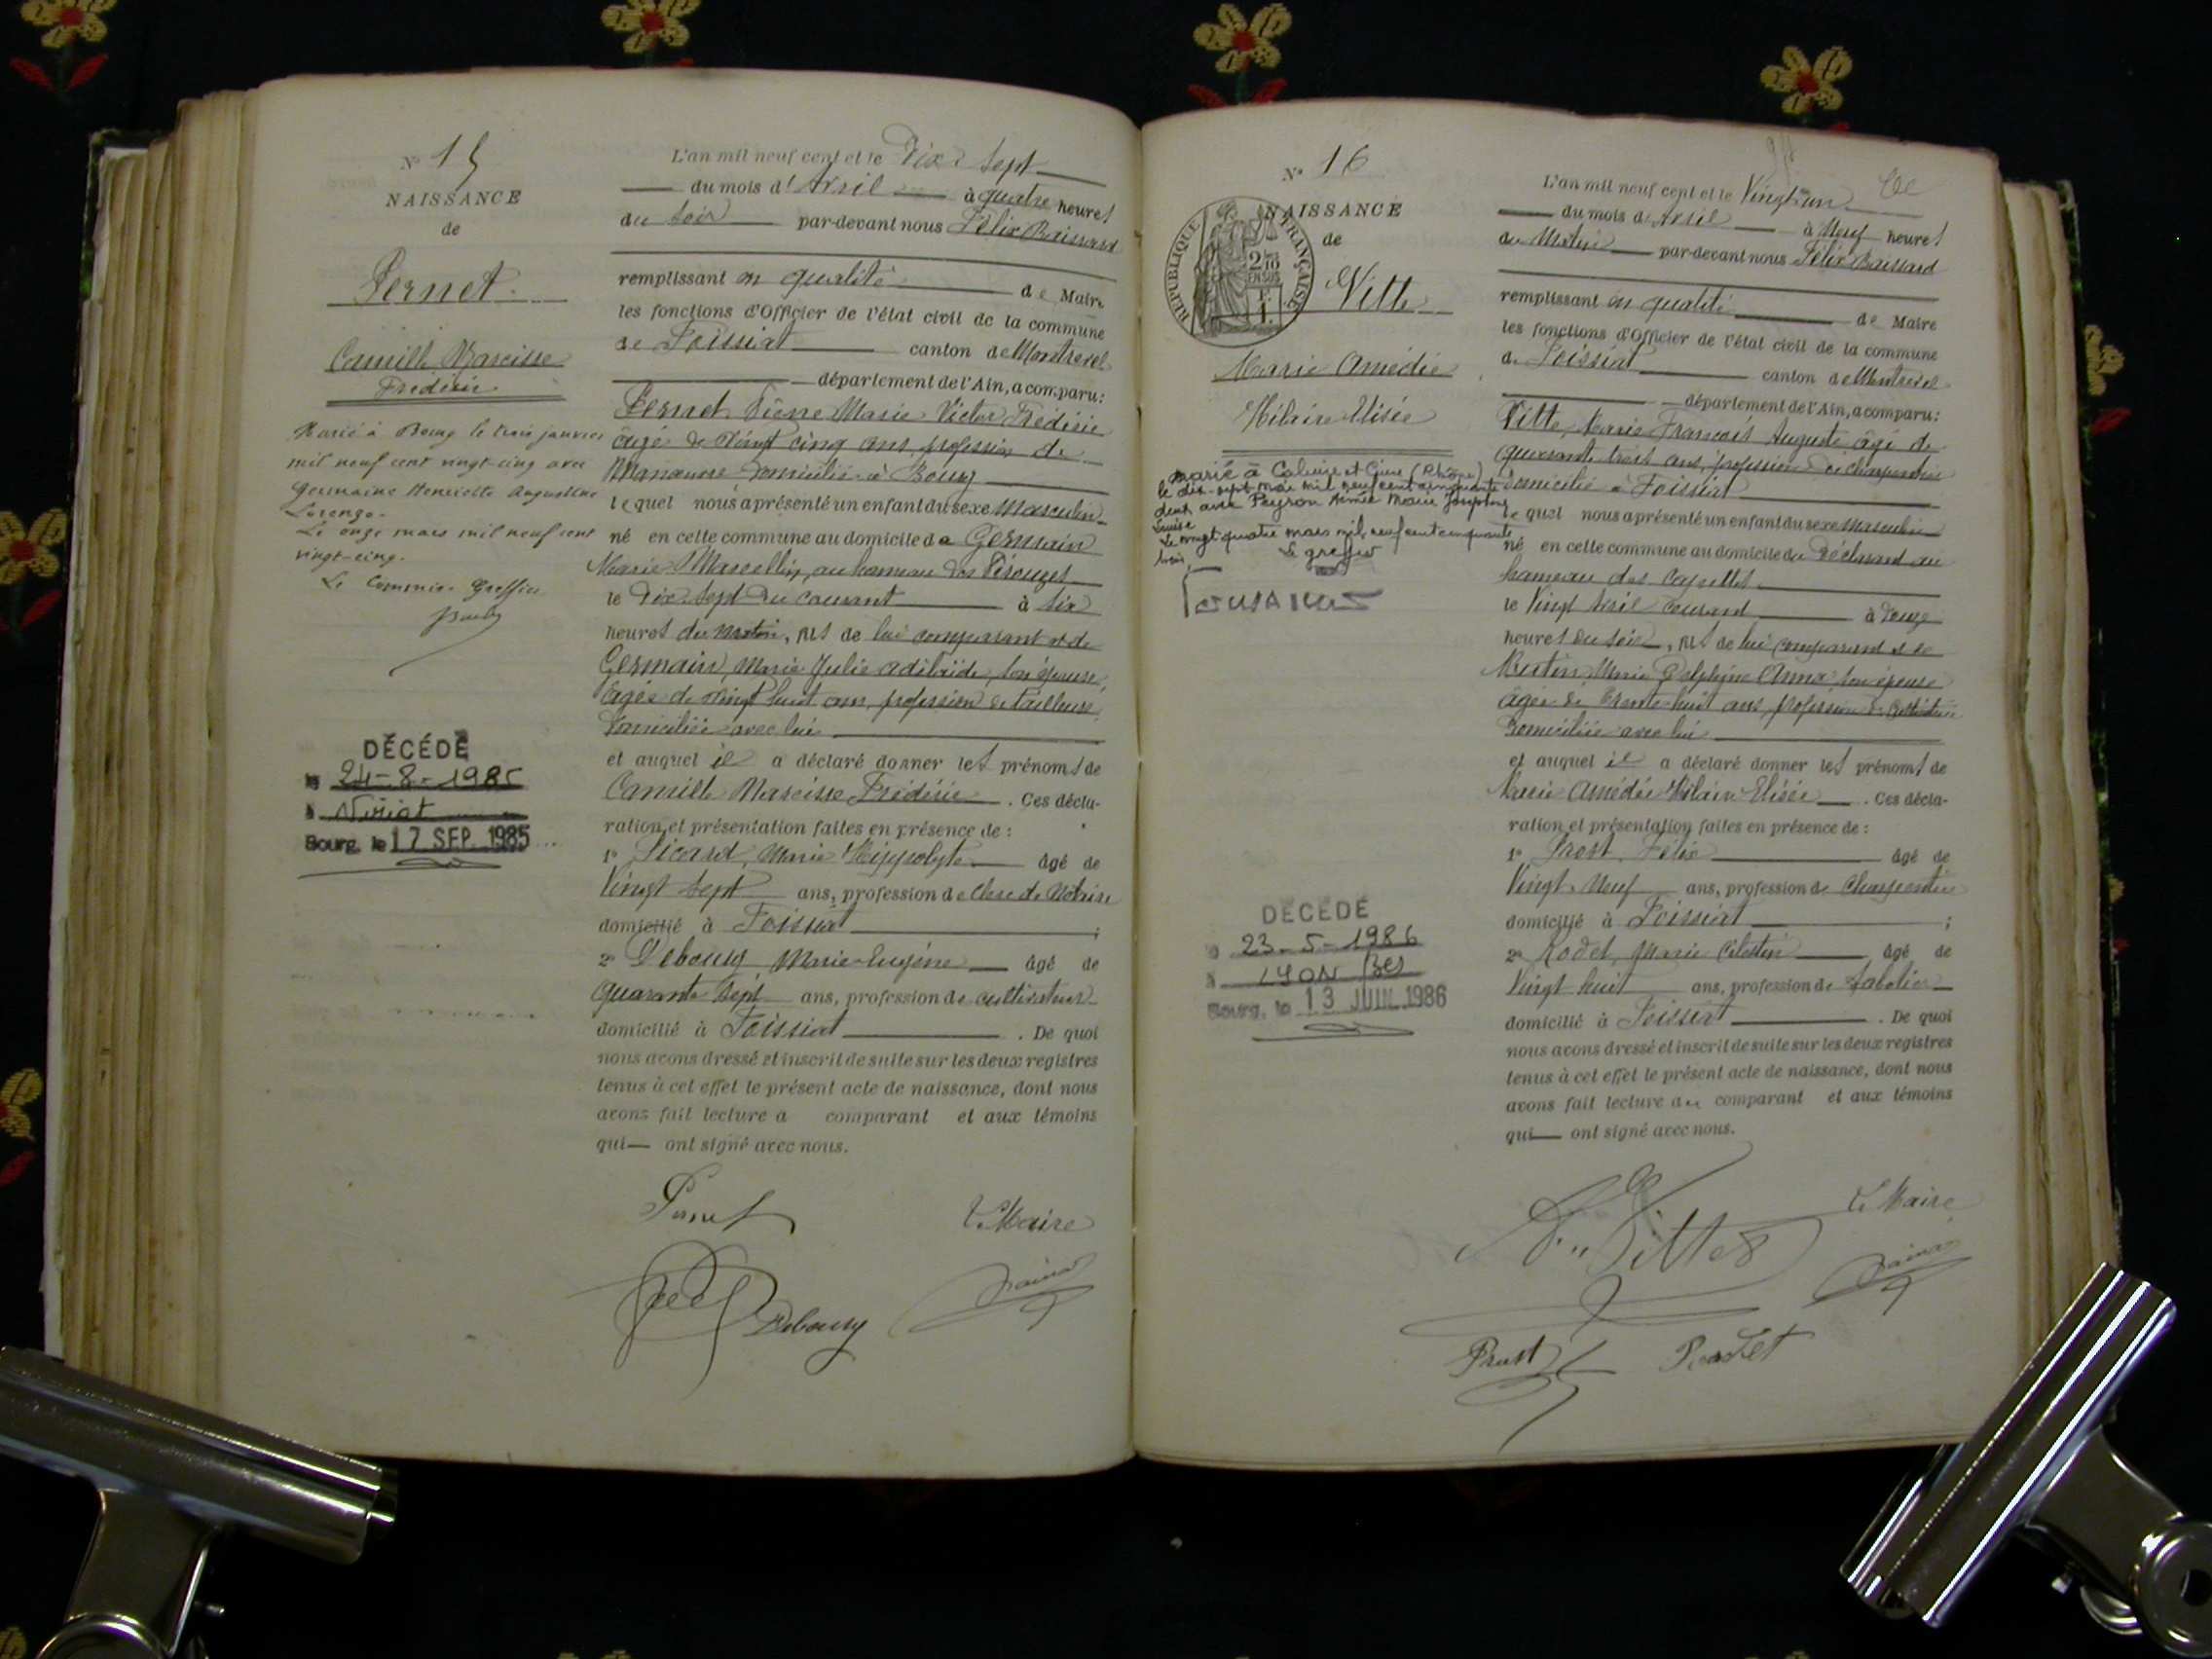 N° 15
NAISSANCE
de
Pernet
Camille Narcisse
Frédéric
Marié à Bourg le trois janvier
mil neuf cent vingt-cinq avec
Germaine Henriette Augustine
Le onze mars mil neuf cent
vingt-cinq.
Le Commis Greffier
DÉCÉDÉ
le 24-8-1985
à Viriat
Bourg, le 17 SEP. 1985
L'an mil neuf cent et le Dix Sept
du mois d'Avril à quatre heures
du soir par-devant nous Félix
remplissant en qualité de Maire
les fonctions d'Officier de l'état civil de la commune
de Foissiat canton de Montrevel
département de l'Ain, a comparu:
Pernet Marie Victor Frédéric
âgé de Vingt cinq ans, profession de
Manœuvre domicilié à Bourg
lequel nous a présenté un enfant du sexe Masculin
né en cette commune au domicile de Germain
Marie Marcellin, au hameau des
le Dix Sept du courant à six
heures du matin, fils de lui comparant et de
Germain, Marie Julie Adélaïde, son épouse,
âgée de vingt huit ans, profession de tailleuse,
domiciliée avec lui
et auquel il a déclaré donner les prénoms de
Camille Narcisse Frédéric. Ces décla-
ration et présentation faites en présence de :
1° Picard, Marie Hippolyte âgé de
Vingt Sept ans, profession de Clerc de Notaire
domicilié à Foissiat ;
2° Debourg Marie Eugène âgé de
Quarante Sept ans, profession de cultivateur
domicilié à Foissiat. De quoi
nous avons dressé et inscrit de suite sur les deux registres
tenus à cet effet le présent acte de naissance, dont nous
avons fait lecture a comparant et aux témoins
qui ont signé avec nous.
Pernet
Le Maire
Debourg
N° 16
NAISSANCE
de
RÉPUBLIQUE FRANÇAISE
2/10
EN SUS
Vitte
Marie Amédée
Hilaire Elisée
Marié à Caluire et Cuire (Rhône)
le dix-sept mai mil neuf cent cinquante
deux avec Peyron Aimée Marie Joséphine
Louise
Le vingt quatre mars mil neuf cent cinquante
trois,
Le greffier
DÉCÉDÉ
23-5-1986
à LYON 3e
Bourg, le 13 JUIN 1986
L'an mil neuf cent et le Vingt un
du mois d'Avril à Neuf heures
du Matin par-devant nous Félix
remplissant en qualité de Maire
les fonctions d'Officier de l'état civil de la commune
de Foissiat canton de Montrevel
département de l'Ain, a comparu:
Vitte, Marie François Auguste âgé de
quarante ans, profession de charpentier
domicilié à Foissiat
lequel nous a présenté un enfant du sexe Masculin
né en cette commune au domicile du déclarant au
hameau des
le Vingt Avril courant à
heures du soir, fils de lui comparant et de
Marie Delphine Anna son épouse
âgée de trente-huit ans, profession de
domiciliée avec lui
et auquel il a déclaré donner les prénoms de
Marie Amédée Hilaire Elisée. Ces décla-
ration et présentation faites en présence de :
1° Prost, Félix âgé de
Vingt Neuf ans, profession de Charpentier
domicilié à Foissiat ;
2° Rodet, Marie Célestin âgé de
Vingt huit ans, profession de Sabotier
domicilié à Foissiat. De quoi
nous avons dressé et inscrit de suite sur les deux registres
tenus à cet effet le présent acte de naissance, dont nous
avons fait lecture au comparant et aux témoins
qui ont signé avec nous.
Le Maire
Vitte
Prost
Rodet